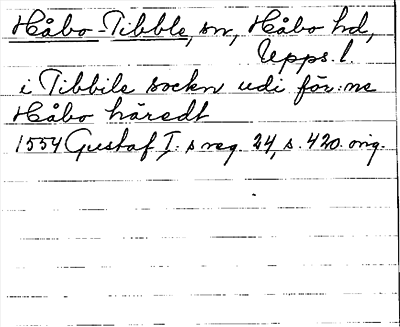 Håbo-Tibble, sn, Håbo hd,
Upps. l.
i Tibbile sockn udi för:ne
Håbo häredt
1554 Gustaf I:s reg. 24, s. 420. orig.